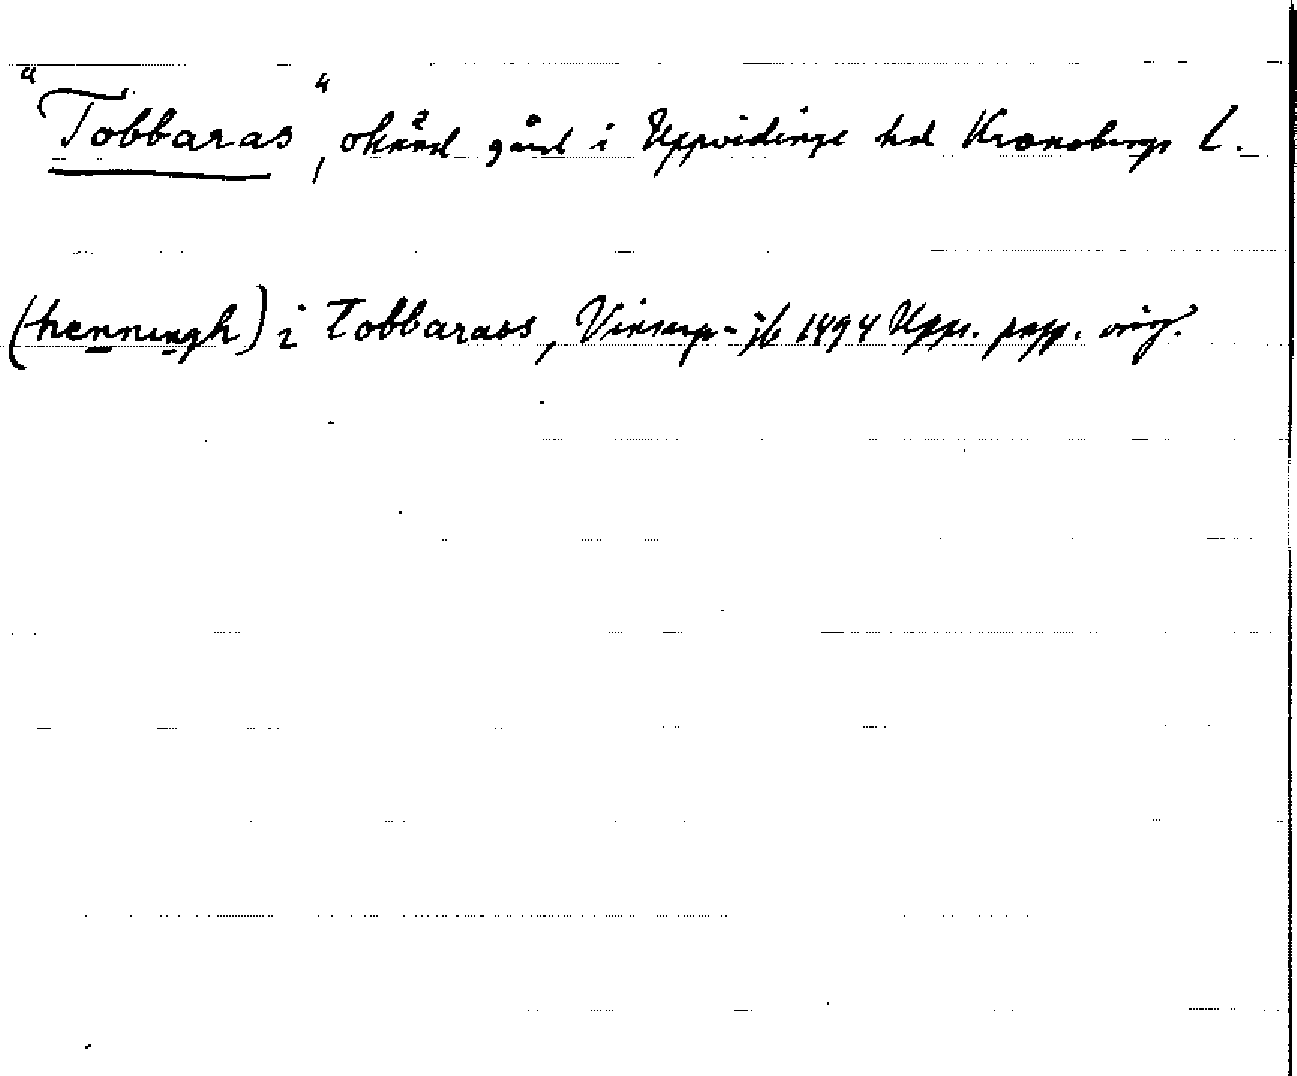 "Tobbaras", okänd gård i Uppvidinge hd Kronobergs l.
(henningh) i Tobbarass, 1494 Upps. papp. orig.